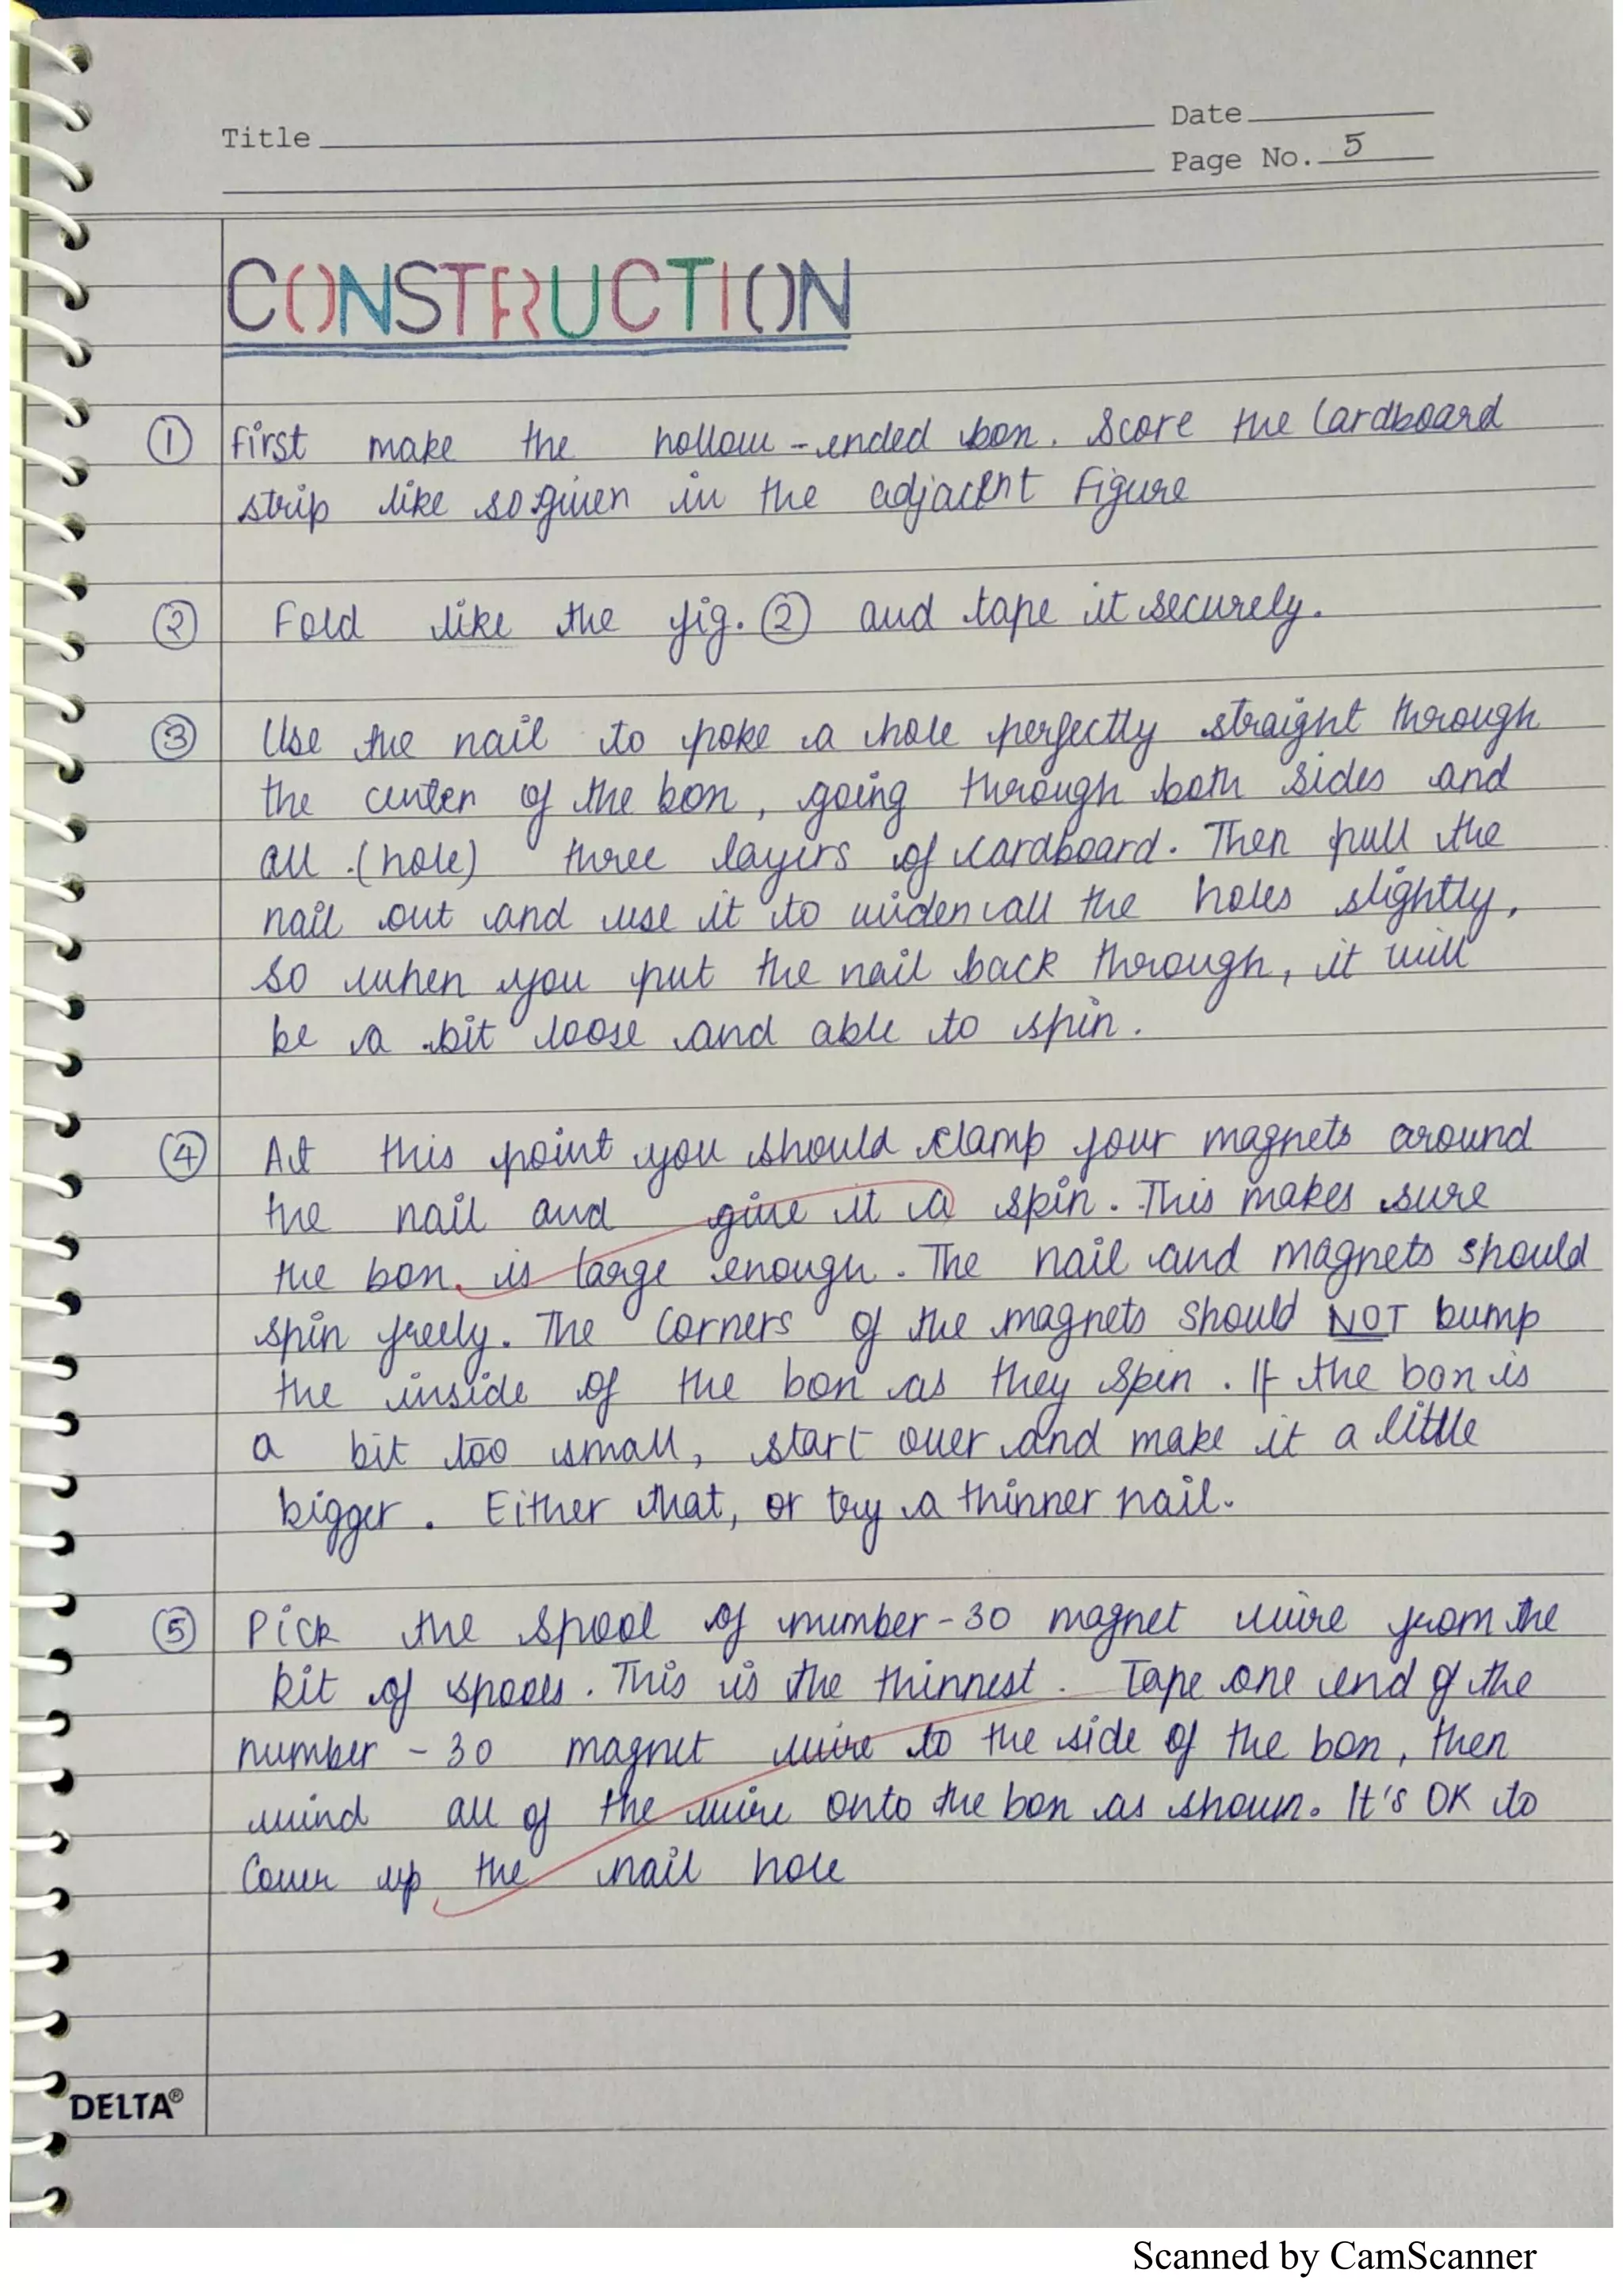 Title
Date
Page No. 5
CONSTRUCTION
① First make the hollow-ended box. Score the Cardboard
strip like so given in the adjacent figure
② Fold like the fig. ② and tape it securely.
③ Use the nail to poke a hole perfectly straight through
the center of the box, going through both sides and
all (hole) three layers of cardboard. Then pull the
nail out and use it to widen all the holes slightly,
so when you put the nail back through, it will
be a bit loose and able to spin.
④ At this point you should clamp your magnets around
the nail and give it a spin. This makes sure
the box is large enough. The nail and magnets should
spin freely. The corners of the magnets should NOT bump
the inside of the box as they spin. If the box is
a bit too small, start over and make it a little
bigger. Either that, or try a thinner nail.
⑤ Pick the spool of number-30 magnet wire from the
kit of spools. This is the thinnest. Tape one end of the
number-30 magnet wire to the side of the box, then
wind all of the wire onto the box as shown. It's OK to
Cover up the nail hole
DELTA®
Scanned by CamScanner